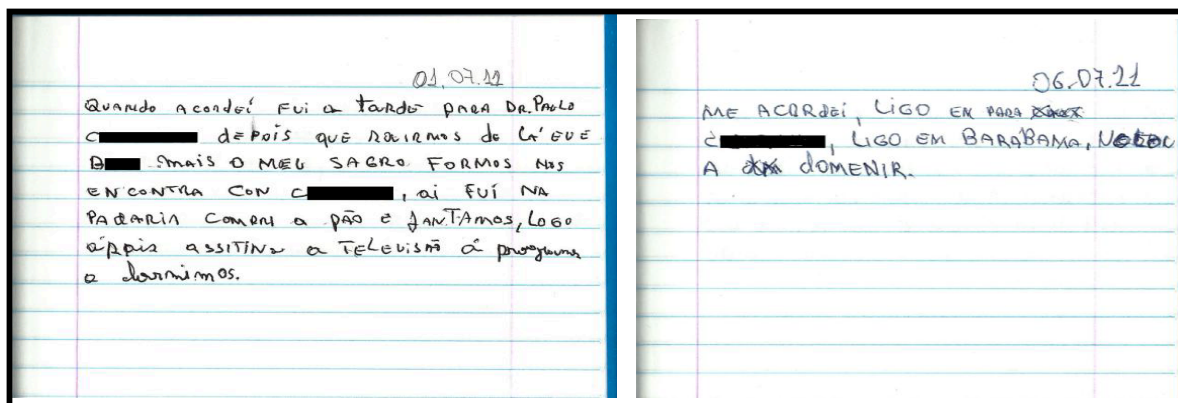 01.07.11
QUANDO ACORDEI FUI a TARDE PARA DR. PAULO
C dEPOIS QUE SAIRMOS de LÁ EU E
B MAIS O MEU SAGRO FORMOS NOS
ENCONTRA CON C, ai FUÍ NA
PADARIA COMPRI a PÃO E JANTAMOS, LOGO
áppis ASSITINA a TELEVISÃO á programa
e dormimos.
06.07.11
ME ACORDEÍ, LIGO EN PARA
C, LIGO EM BARÁBAMA,
A DOMENIR.